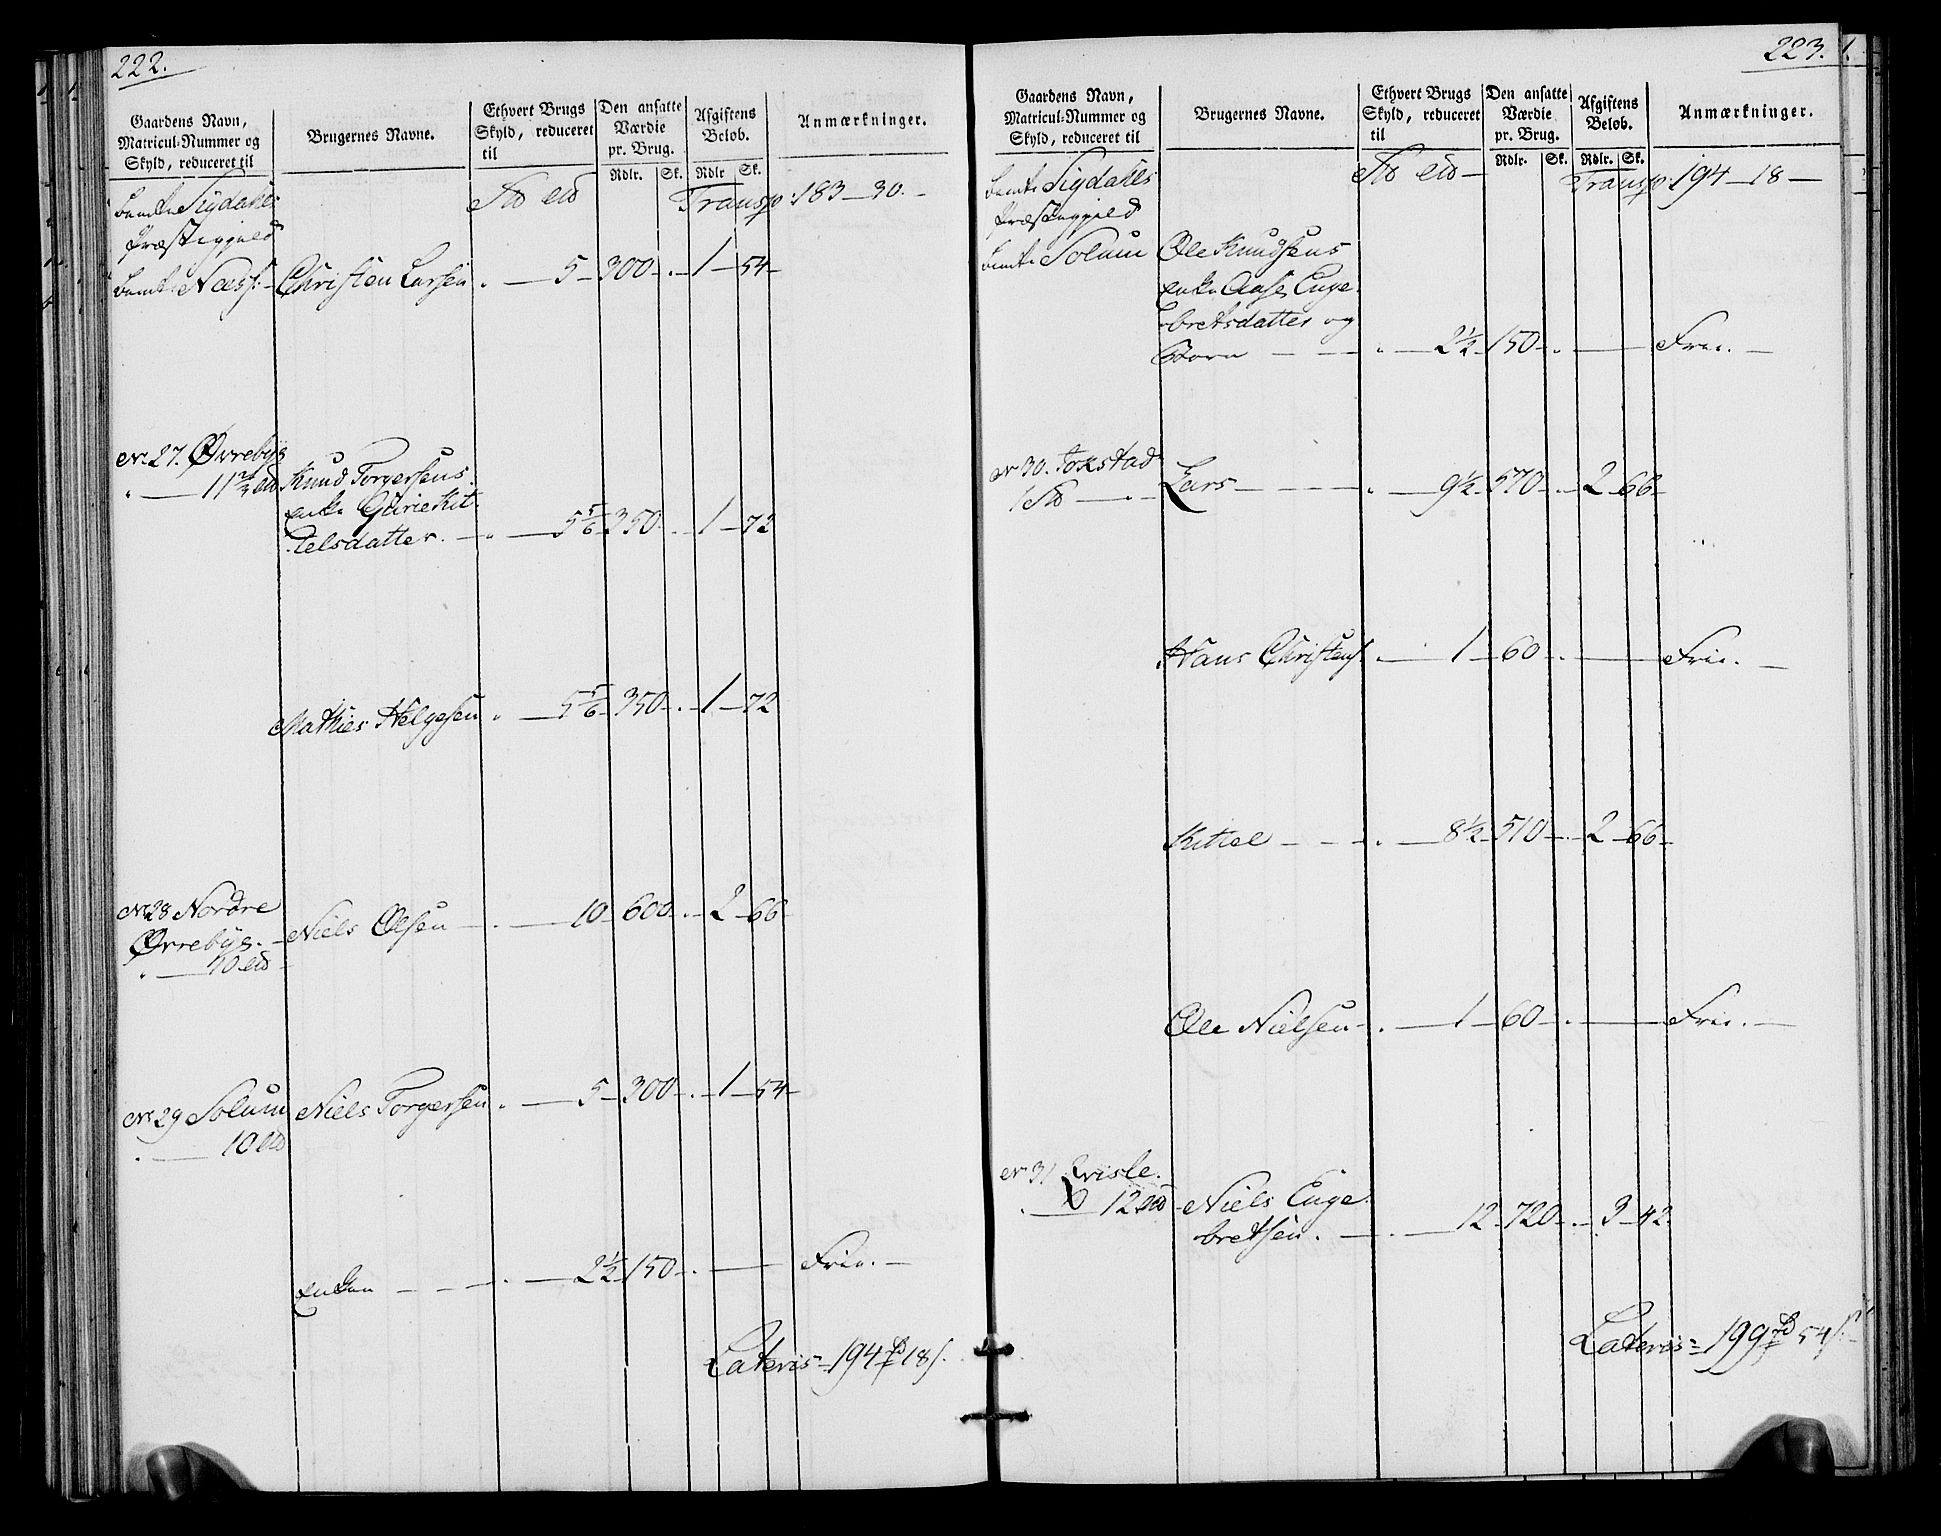 222.
Gaardens Navn,
Matricul-Nummer og
Skyld, reduceret til
Brugernes Navne.
Ethvert Brugs
Skyld, reduceret
til
Den ansatte
Værdie
pr. Brug.
Rdlr. Sk.
Afgiftens
Beløb.
Rdlr Sk.
Anmærkninger.
bemte Sigdahls Transp 183 - 30. -
Præstegjeld
bemte Næss. - Christen Larsen . - 5 - 300 - . - 1 - 54 -
No 27. Øvrebye
" - 11 2/3 Knud Torgersens
Enke Gurie Kit-
telsdatter. - " - 5 5/6 350 - . - 1 - 72
Mathies Helgesen " - 5 5/6 - 350 - . - 1 - 72
No 28 Nordre
Øvrebye. - Niels Olsen - . - 10 - 600 - . - 2 - 66 -
" - 10
No 29 Solum Niels Torgersen . - 5 - 300 - . - 1 - 54 -
. - 10
Enken - - - . - 2 1/2 - 150 - . - Frie. -
Lateris = 194 rd 18 s.
223.
Gaardens Navn,
Matricul-Nummer og
Skyld, reduceret til
Brugernes Navne.
Ethvert Brugs
Skyld, reduceret
til
Den ansatte
Værdie
pr. Brug.
Rdlr. Sk.
Afgiftens
Beløb.
Rdlr. Sk.
Anmærkninger.
bemte Sigdahls Transp. 194 - 18 -
Præstegjeld
bemte Solum Ole Knudsens
Enke Aase Enge-
bretsdatter og
Børn - - - . - 2 1/2 - 150 - . - Frie. -
No 30. Tokstad
Lars - - - . - 9 1/2 - 570 - . - 2 - 66 -
Hans Christens. . - 1 - 60 - . - Frie. -
Kittel - - - . - 8 1/2 - 510 - . - 2 - 66 -
Ole Nielsen - . - 1 - 60 - . - Frie. -
No 31 Qvisle.
. - 12 - Niels Enge-
bretsen. - . - 12 - 720 - . - 3 - 42
Lateris = 199 rd 54 s. -